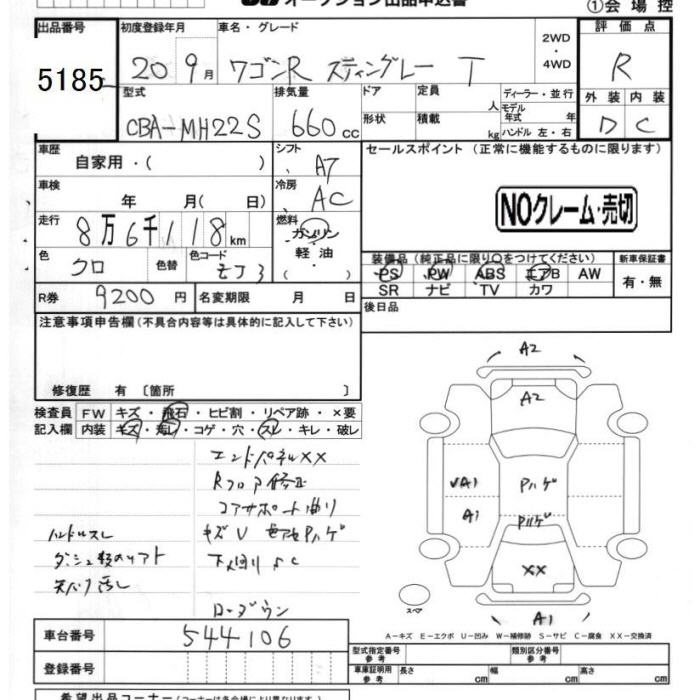 オークション出品申込書
①会場控
出品番号 初度登録年月 車名・グレード 2WD ・ 4WD 評価点
5185 20 9月 ワゴンR スティングレー T R
型式 排気量 ドア 定員 人 ディーラー・並行 外装 内装
CBA-MH22S 660cc 形状 積載 kg モデル年式 年 ハンドル 左・右 D C
車歴 自家用・( ) シフト A7 セールスポイント (正常に機能するものに限ります)
車検 年 月( 日) 冷房 AC
NOクレーム・売切
走行 8万6千118km 燃料 ガソリン 軽油 ・
色 クロ 色替 色コード ZJ3 装備品(純正品に限り○をつけてください) 新車保証書
PS PW ABS エアB AW 有・無
R券 9200円 名変期限 月 日 SR ナビ TV カワ
後日品
注意事項申告欄(不具合内容等は具体的に記入して下さい)
修復歴 有 〔箇所 〕
検査員 FW キズ・飛石・ヒビ割・リペア跡・×要
記入欄 内装 キズ・汚レ・コゲ・穴・スレ・キレ・破レ
エンドパネルXX
Rフロア修正
コアサポート曲り
ハンドルスレ キズU
下回りSC
天張汚し
ローダウン
A2
A2
UA1 Pハゲ
A1 Pハゲ
XX
スペア A1
A-キズ E-エクボ U-凹み W-補修跡 S-サビ C-腐食 XX-交換済
車台番号 544106
型式指定番号 参考 類別区分番号 参考
登録番号 車庫証明用 参考 長さ cm 幅 cm 高さ cm
希望出品コーナー(コーナーは各会場により異なります)